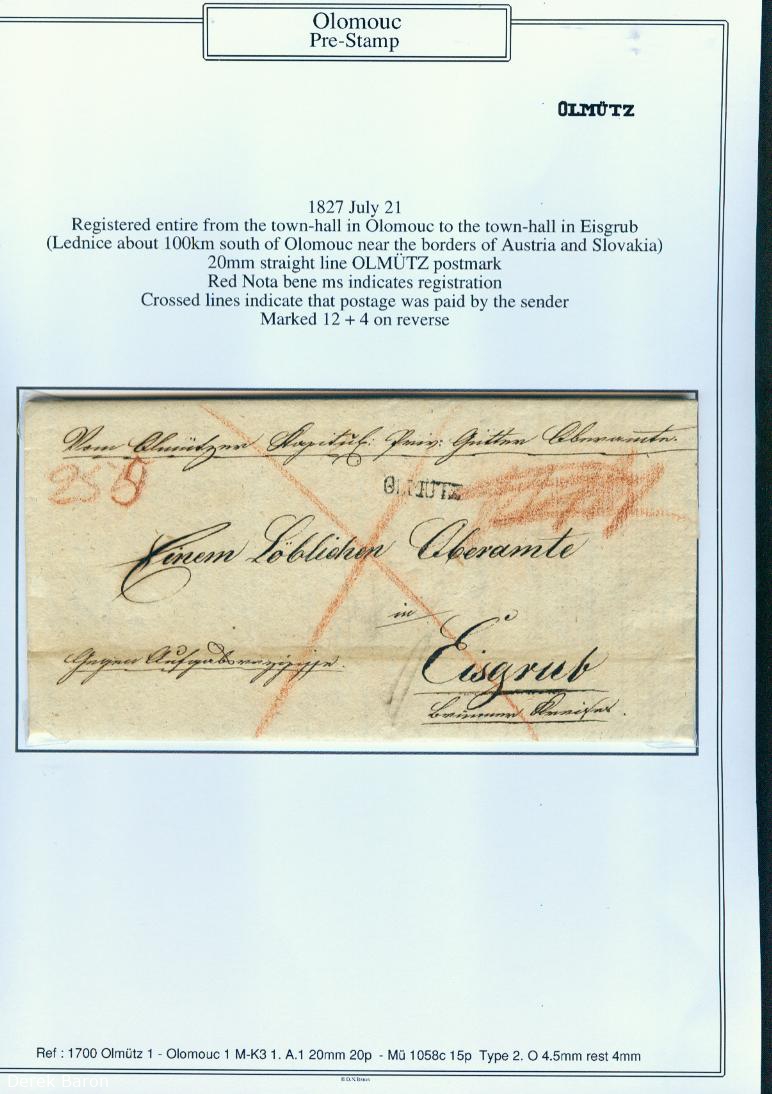 Olomouc
Pre-Stamp
OLMÜTZ
1827 July 21
Registered entire from the town-hall in Olomouc to the town-hall in Eisgrub
(Lednice about 100km south of Olomouc near the borders of Austria and Slovakia)
20mm straight line OLMÜTZ postmark
Red Nota bene ms indicates registration
Crossed lines indicate that postage was paid by the sender
Marked 12 + 4 on reverse
Vom Olmützer Kapitul: Priv: Gütter Oberamte.
OLMÜTZ
Einem Löblichen Oberamte
in
Gegen Aufgabsrezipisse.
Eisgrub
Brünner Kreises.
Ref : 1700 Olmütz 1 - Olomouc 1 M-K3 1. A.1 20mm 20p - Mü 1058c 15p Type 2. O 4.5mm rest 4mm
Derek Baron